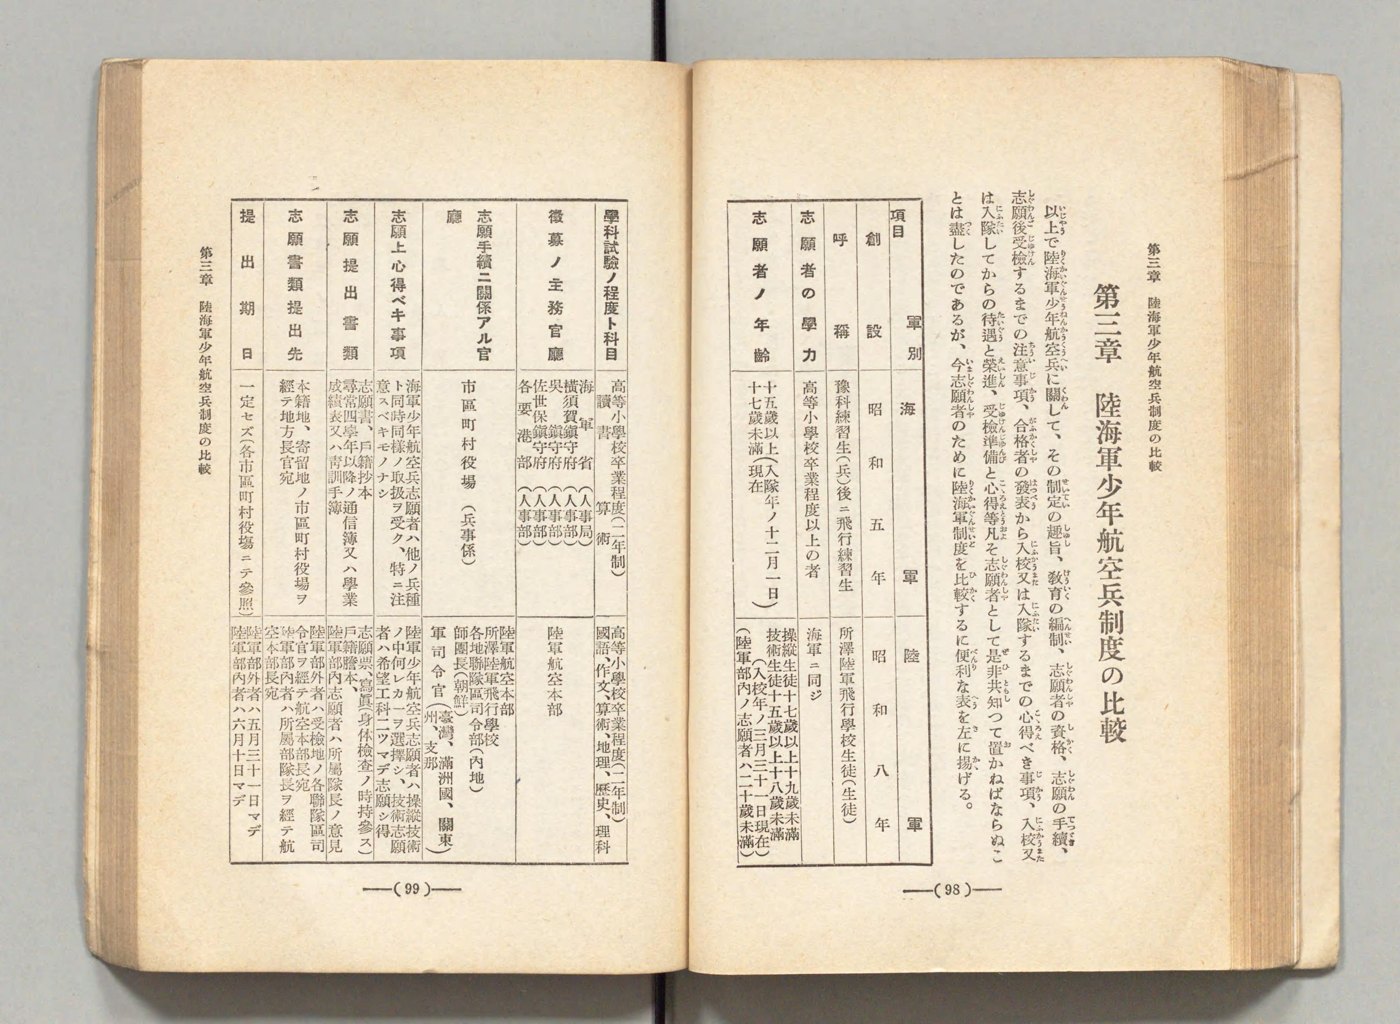 第三章　陸海軍少年航空兵制度の比較
第三章　陸海軍少年航空兵制度の比較
以上で陸海軍少年航空兵に關して、その制定の趣旨、敎育の編制、志願者の資格、志願の手續、
志願後受檢するまでの注意事項、合格者の發表から入校又は入隊するまでの心得べき事項、入校又
は入隊してからの待遇と榮進、受檢準備と心得等凡そ志願者として是非共知つて置かねばならぬこ
とは盡したのであるが、今志願者のために陸海軍制度を比較するに便利な表を左に揚げる。
項目　軍別　海軍　陸軍
創設　昭和五年　昭和八年
呼稱　豫科練習生(兵)後ニ飛行練習生　所澤陸軍飛行學校生徒(生徒)
志願者の學力　高等小學校卒業程度以上の者　海軍ニ同ジ
志願者ノ年齡
十五歲以上(入隊年ノ十二月一日)
十七歲未滿(現在
操縱生徒十七歲以上十九歲未滿
技術生徒十五歲以上十八歲未滿
(入校年ノ三月三十一日現在)
(陸軍部內ノ志願者ハ二十歲未滿)
―(98)―
學科試驗ノ程度ト科目
高等小學校卒業程度(二年制)
讀書　算術
高等小學校卒業程度(二年制)
國語、作文、算術、地理、歷史、理科
徵募ノ主務官廳
海軍省(人事局)
橫須賀鎭守府(人事部)
吳鎭守府(人事部)
佐世保鎭守府(人事部)
各要港部(人事部)
陸軍航空本部
志願手續ニ關係アル官
廳
市區町村役場(兵事係)
陸軍航空本部
所澤陸軍飛行學校
各地聯隊區司令部(內地)
師團長(朝鮮)
軍司令官(臺灣、滿洲國、關東)
州、支那
志願上心得ベキ事項
海軍少年航空兵志願者ハ他ノ兵種
ト同時同樣ノ取扱ヲ受ク、特ニ注
意スベキモノナシ
陸軍少年航空兵志願者ハ操縱技術
ノ中何レカ一ヲ選擇シ、技術志願
者ハ希望工科二ツマデ志願シ得
志願提出書類
志願書、戶籍抄本
尋常四學年以降ノ通信簿又ハ學業
成績表又ハ靑訓手簿
志願票、寫眞(身体檢査ノ時持參ス)
戶籍謄本、
陸軍部內志願者ハ所屬隊長ノ意見
志願書類提出先
本籍地、寄留地ノ市區町村役場ヲ
經テ地方長官宛
陸軍部外者ハ受檢地ノ各聯隊區司
令官ヲ經テ航空本部長宛
陸軍部內者ハ所屬部隊長ヲ經テ航
空本部長宛
提出期日
一定セズ(各市區町村役塲ニテ參照)
陸軍部外者ハ五月三十一日マデ
陸軍部內者ハ六月十日マデ
第三章　陸海軍少年航空兵制度の比較
―(99)―